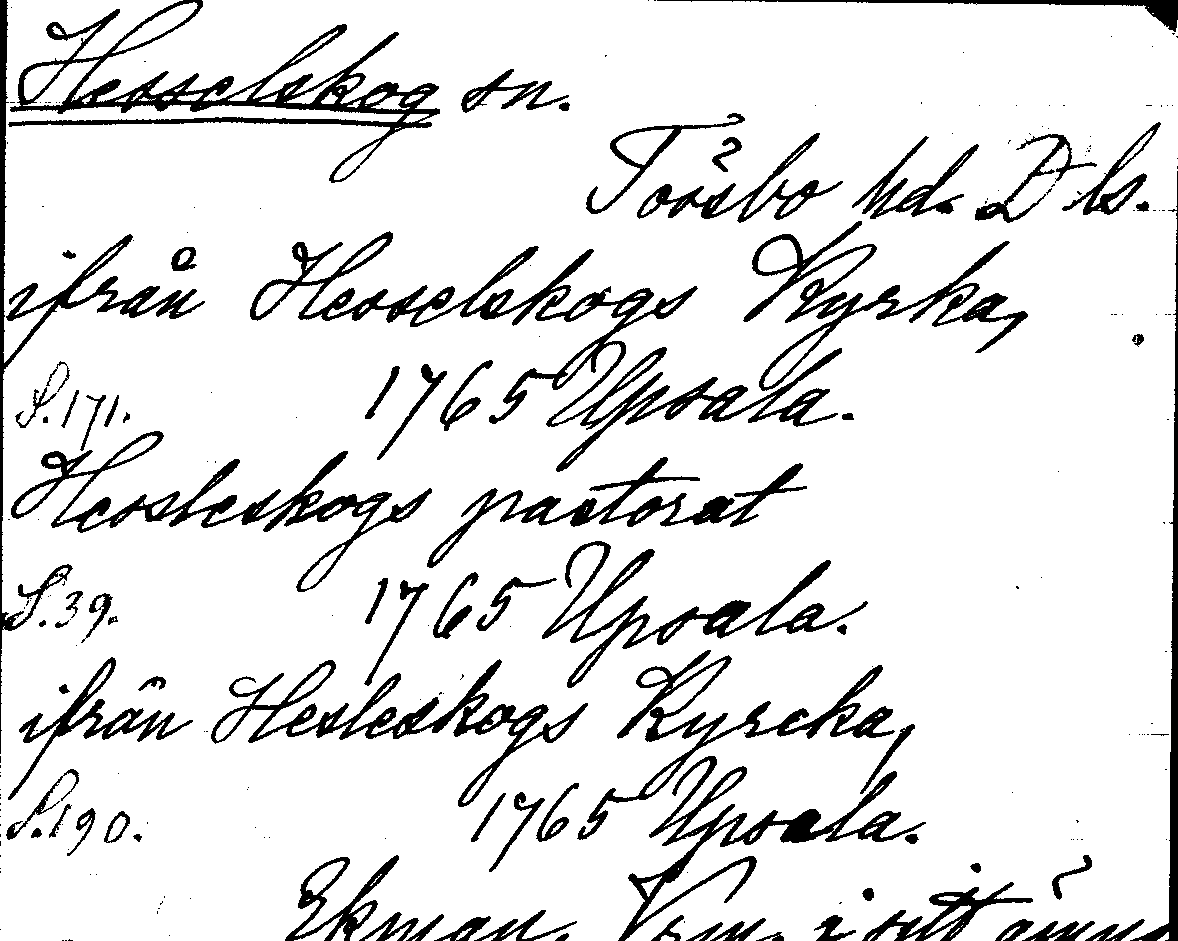 Hesselskog sn.
Tössbo hd. Dls.
ifrån Hesselskogs Kyrka,
S.171. 1765 Upsala.
Hessleskogs pastorat
S.39. 1765 Upsala.
ifrån Hesleskogs Kyrcka,
S.190. 1765 Upsala.
Ekman. Verm. i sitt ämne